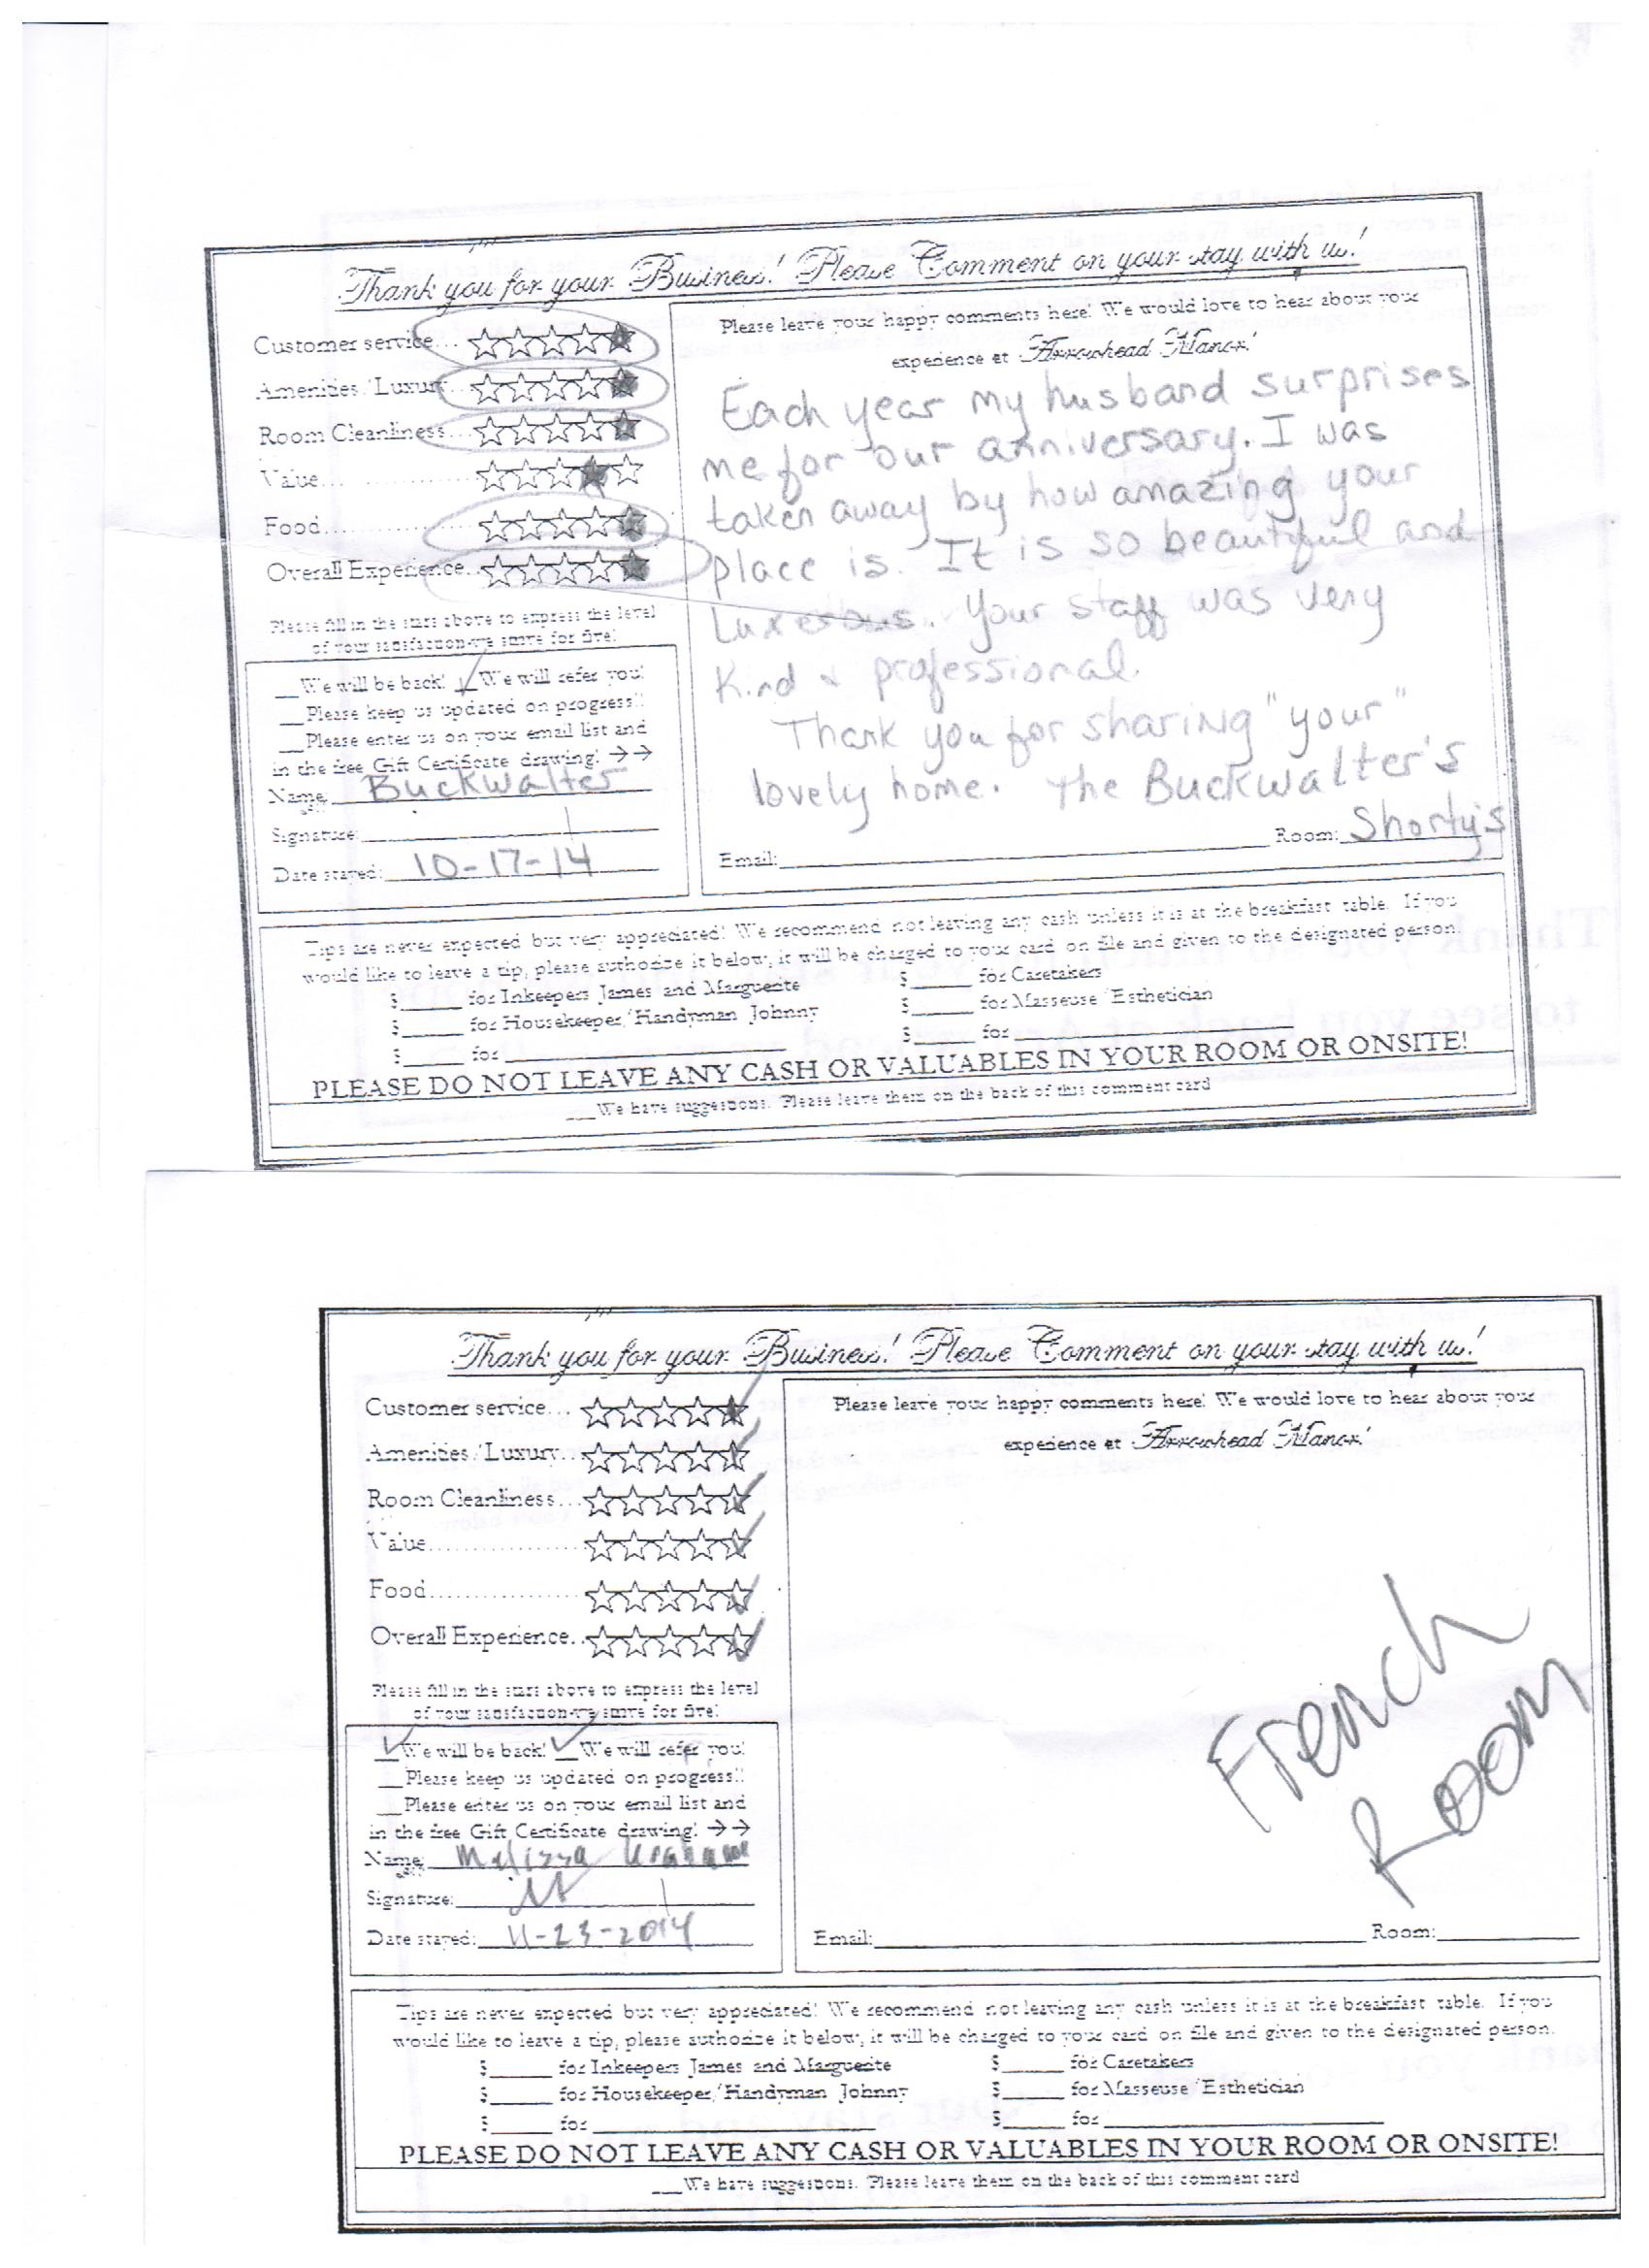 Thank you for your Business! Please Comment on your stay with us!
Customer service...
Amenities/Luxury...
Room Cleanliness...
Value...............
Food...............
Overall Experience..
Please fill in the stars above to express the level
of your satisfaction-we strive for five!
__We will be back! __We will refer you!
__Please keep us updated on progress!!
__Please enter us on your email list and
in the free Gift Certificate drawing! →→
Name: Buckwalter
Signature:
Date stayed: 10-17-14
Please leave your happy comments here! We would love to hear about your
experience at Arrowhead Manor!
Each year my husband surprises
me for our anniversary. I was
taken away by how amazing your
place is. It is so beautiful and
Luxerous. Your staff was very
Kind & professional.
Thank you for sharing "your"
lovely home. The Buckwalter's
Email: Room: Shorty's
Tips are never expected but very appreciated! We recommend not leaving any cash unless it is at the breakfast table. If you
would like to leave a tip, please authorize it below, it will be charged to your card on file and given to the designated person.
$_____ for Inkeepers James and Marguerite $_____ for Caretakers
$_____ for Housekeeper/Handyman Johnny $_____ for Masseuse/Esthetician
$_____ for $_____ for
PLEASE DO NOT LEAVE ANY CASH OR VALUABLES IN YOUR ROOM OR ONSITE!
___We have suggestions. Please leave them on the back of this comment card
Thank you for your Business! Please Comment on your stay with us!
Customer service...
Amenities/Luxury...
Room Cleanliness...
Value...............
Food...............
Overall Experience..
Please fill in the stars above to express the level
of your satisfaction-we strive for five!
__We will be back! __We will refer you!
__Please keep us updated on progress!!
__Please enter us on your email list and
in the free Gift Certificate drawing! →→
Name: Melissa
Signature:
Date stayed: 11-23-2014
Please leave your happy comments here! We would love to hear about your
experience at Arrowhead Manor!
French
Room
Email: Room:
Tips are never expected but very appreciated! We recommend not leaving any cash unless it is at the breakfast table. If you
would like to leave a tip, please authorize it below, it will be charged to your card on file and given to the designated person.
$_____ for Inkeepers James and Marguerite $_____ for Caretakers
$_____ for Housekeeper/Handyman Johnny $_____ for Masseuse/Esthetician
$_____ for $_____ for
PLEASE DO NOT LEAVE ANY CASH OR VALUABLES IN YOUR ROOM OR ONSITE!
___We have suggestions. Please leave them on the back of this comment card